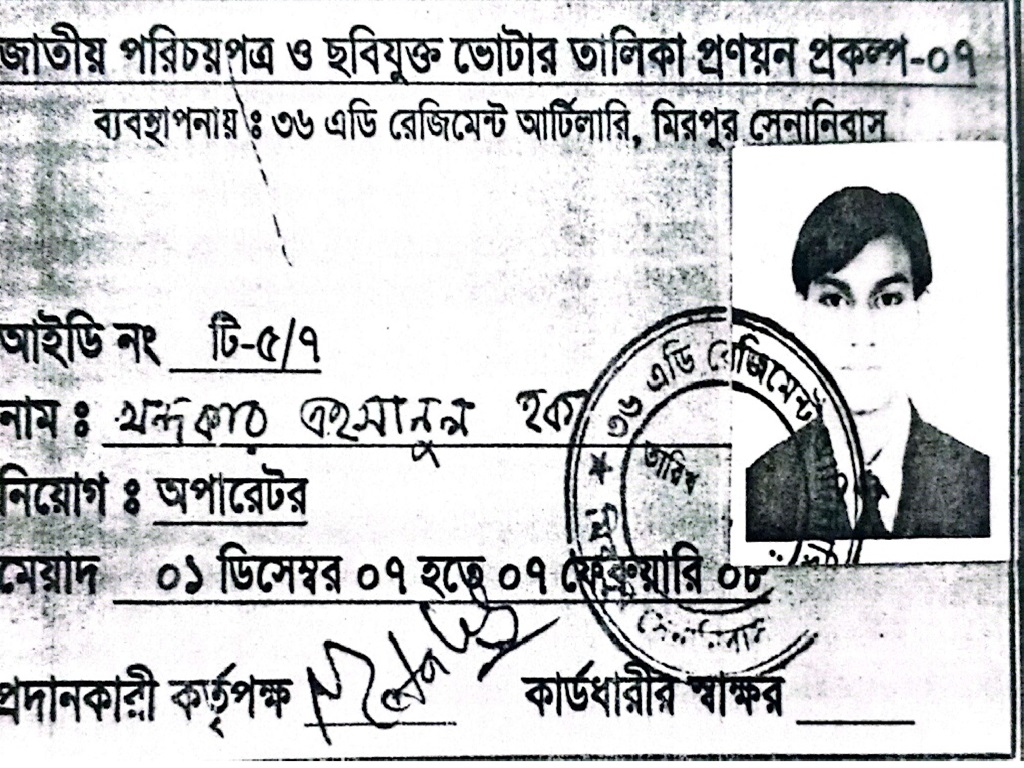 জাতীয় পরিচয়পত্র ও ছবিযুক্ত ভোটার তালিকা প্রণয়ন প্রকল্প-০৭
ব্যবস্থাপনায় : ৩৬ এডি রেজিমেন্ট আর্টিলারি, মিরপুর সেনানিবাস
আইডি নং টি-৫/৭
নাম : খন্দকার এহসানুল হক
নিয়োগ : অপারেটর
মেয়াদ ০১ ডিসেম্বর ০৭ হতে ০৭ ফেব্রুয়ারি ০৮
প্রদানকারী কর্তৃপক্ষ
কার্ডধারীর স্বাক্ষর
৩৬ এডি রেজিমেন্ট
তারিখ
সেনানিবাস